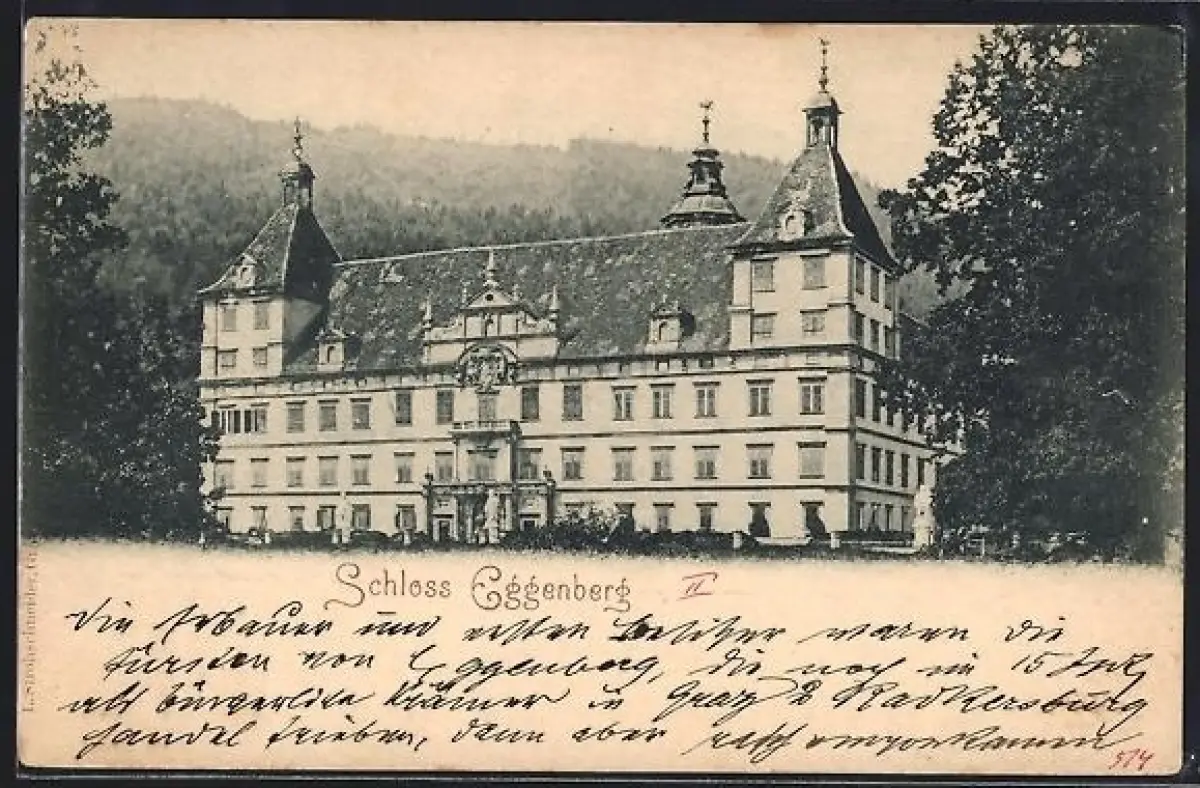 Schloss Eggenberg II
die Erbauer und ersten Besitzer waren die
Fürsten von Eggenberg, die noch im 15 Jhh
als bürgerliche Krämer in Graz & Radkersburg
handel trieben, dann aber rasch emporkamen
514